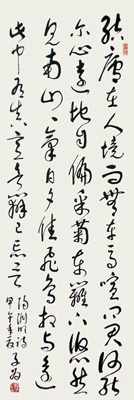 結廬在人境而無車馬喧問君何能
尔心遠地自偏采菊東籬下悠然
見南山山氣日夕佳飛鳥相与還
此中有真意欲辯已忘言
陶淵明詩
甲午年